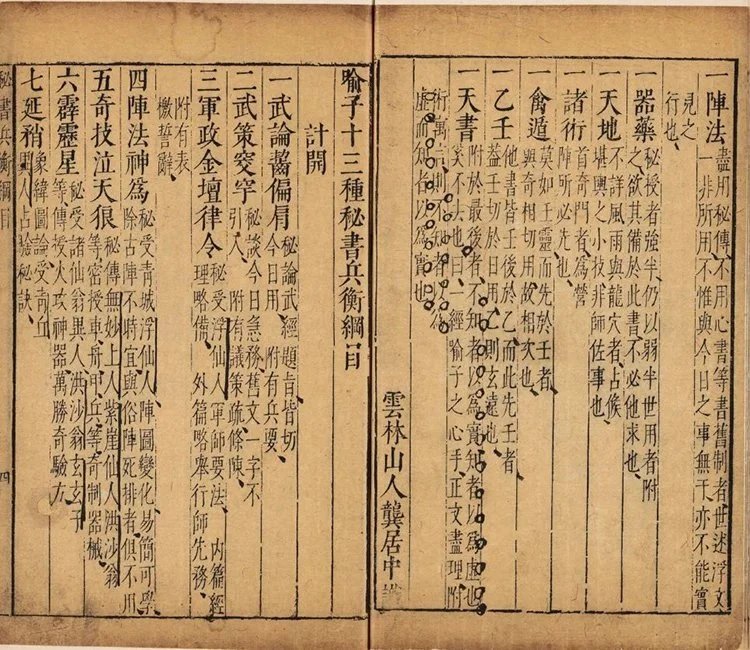 一陣法盡用秘傳不用心書等書舊制者世迷浮文
一非所用不惟與今日之事無干亦不能實
見之
行也
一器藥秘授者強半仍以弱半世用者附
之欲其備於此書不必他求也
一天地不詳風雨與龍穴者占候
堪輿之小技非師佐事也
一諸術首奇門者為營
陣所必先也
一禽遁莫如王靈而先於壬者
與奇相切用故相次也
一乙壬他書皆壬後於乙而此先壬者
蓋壬切於日用乙則玄遠也
一天書附於最後者不知者以為實知者以為虛也
笑不大也曰一經喻子之心手正文盡理附
術寓言則不知者以為
虛而知者以為實也
雲林山人龔居中
喻子十三種秘書兵衡綱目
計開
一武論勗偏肩秘論武經題旨皆切
今日用附有兵要
二武策突穽秘談今日急務舊文一字不
引入附有議策疏條陳
三軍政金壇律令秘受浮仙人軍師要法內篇經
理略備外篇略舉行師先務
附有表
檄誓辭
四陣法神爲秘受青城浮仙人陣圖變化易簡可學
除古陣不時宜與俗陣死排者俱不用
五奇技泣天狼秘傳無妙上人紫崖仙人洪沙翁
等密授車舟甲兵等奇制器械
六霹靂星秘受諸仙翁異人洪沙翁玄玄子
等傳授火攻神器萬勝奇驗方
七延稍象緯圖論受青丘
異人占驗秘訣
秘書兵衡綱目
四